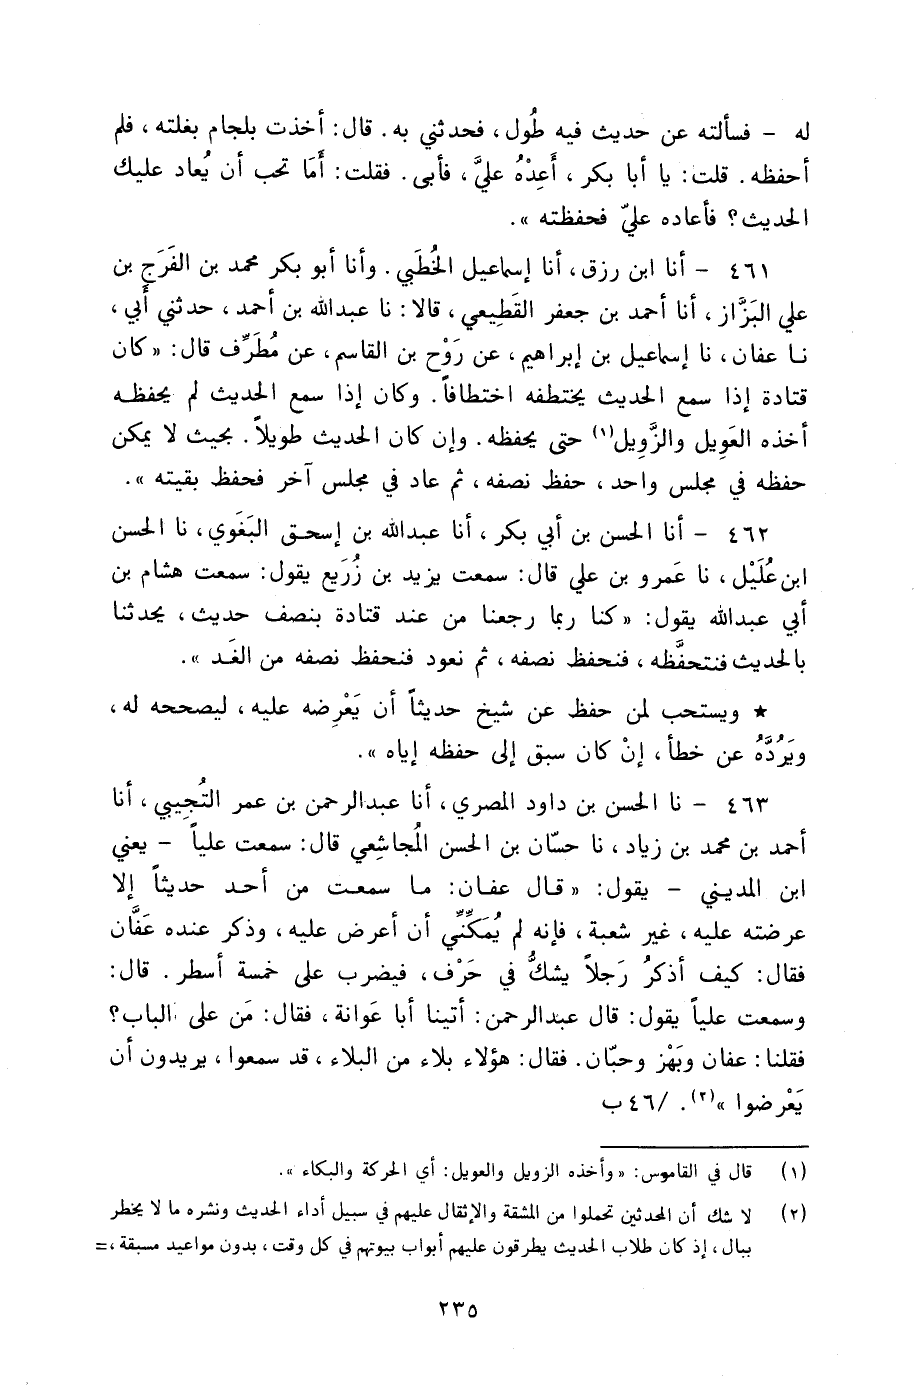 له – فسألته عن حديث فيه طُول، فحدثني به. قال: أخذت بلجام بغلته، فلم
أحفظه. قلت: يا أبا بكر، أَعِدْهُ عليَّ، فأبى. فقلت: أَمَا تحب أن يُعاد عليك
الحديث؟ فأعاده عليّ فحفظته».
٤٦١ – أنا ابن رزق، أنا إسماعيل الخُطَبي. وأنا أبو بكر محمد بن الفَرَج بن
علي البَزَّاز، أنا أحمد بن جعفر القَطِيعي، قالا: نا عبدالله بن أحمد، حدثني أَبي،
نا عفان، نا إسماعيل بن إبراهيم، عن رَوْح بن القاسم، عن مُطَرِّف قال: «كان
قتادة إذا سمع الحديث يختطفه اختطافاً. وكان إذا سمع الحديث لم يحفظه
أخذه العَوِيل والزَّوِيل(١) حتى يحفظه. وإن كان الحديث طويلاً. بحيث لا يمكن
حفظه في مجلس واحد، حفظ نصفه، ثم عاد في مجلس آخر فحفظ بقيته».
٤٦٢ – أنا الحسن بن أبي بكر، أنا عبدالله بن إسحق البَغَوي، نا الحسن
ابن عُلَيْل، نا عَمرو بن علي قال: سمعت يزيد بن زُرَيع يقول: سمعت هشام بن
أبي عبدالله يقول: «كنا ربما رجعنا من عند قتادة بنصف حديث، يحدثنا
بالحديث فنتحفَّظه، فنحفظ نصفه، ثم نعود فنحفظ نصفه من الغَد».
★ ويستحب لمن حفظ عن شيخ حديثاً أن يَعْرِضه عليه، ليصححه له،
ويَرُدَّهُ عن خطأ، إنْ كان سبق إلى حفظه إياه».
٤٦٣ – نا الحسن بن داود المصري، أنا عبدالرحمن بن عمر التُجِيبي، أنا
أحمد بن محمد بن زياد، نا حسَّان بن الحسن المُجاشِعي قال: سمعت علياً – يعني
ابن المديني – يقول: «قال عفان: ما سمعت من أحد حديثاً إلا
عرضته عليه، غير شعبة، فإنه لم يُمَكِّنِّي أن أعرض عليه، وذكر عنده عَفَّان
فقال: كيف أذكرُ رَجلاً يشكُّ في حَرْف، فيضرب على خمسة أسطر. قال:
وسمعت علياً يقول: قال عبدالرحمن: أتينا أبا عَوانة، فقال: مَن على الباب؟
فقلنا: عفان وبَهْز وحبّان. فقال: هؤلاء بلاء من البلاء، قد سمعوا، يريدون أن
يَعْرضوا»(٢). /٤٦ ب
(١) قال في القاموس: «وأخذه الزويل والعويل: أي الحركة والبكاء».
(٢) لا شك أن المحدثين تحملوا من المشقة والإثقال عليهم في سبيل أداء الحديث ونشره ما لا يخطر
ببال، إذ كان طلاب الحديث يطرقون عليهم أبواب بيوتهم في كل وقت، بدون مواعيد مسبقة، =
٢٣٥